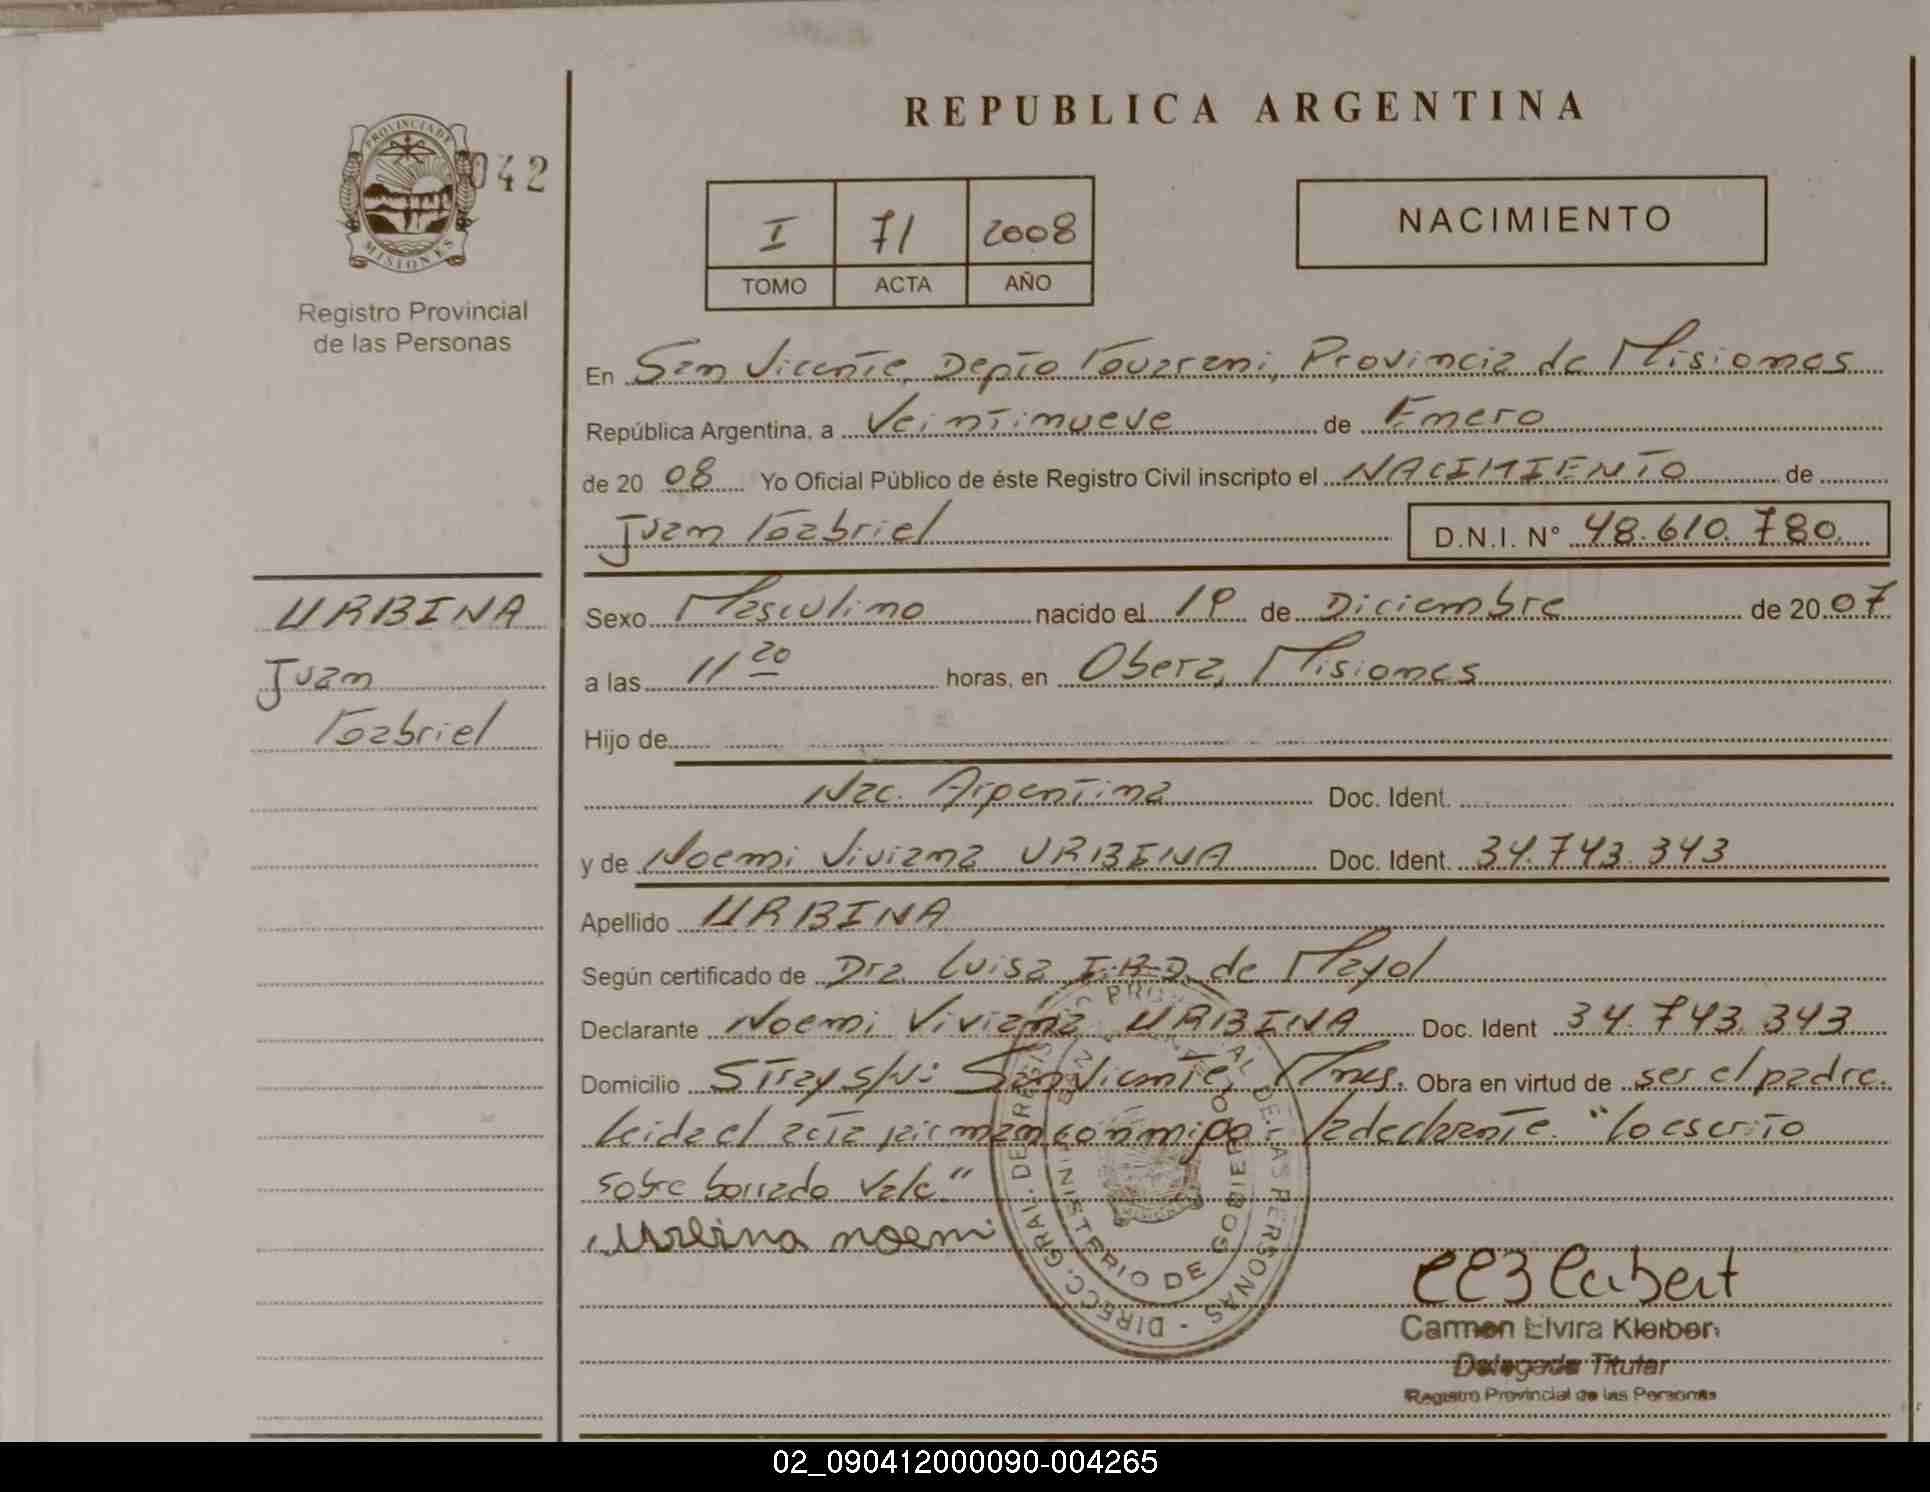 REPUBLICA ARGENTINA
PROVINCIA DE
MISIONES
042
Registro Provincial
de las Personas
I 71 2008
TOMO ACTA AÑO
NACIMIENTO
En San Vicente, Depto Guarani, Provincia de Misiones
República Argentina, a Veintinueve de Enero
de 20 08 Yo Oficial Público de éste Registro Civil inscripto el NACIMIENTO de
Juan Gabriel D.N.I. N° 48.610.780
URBINA
Juan
Gabriel
Sexo Masculino nacido el 19 de Diciembre de 20 07
a las 11 20 horas, en Obera, Misiones
Hijo de
Nac. Argentina Doc. Ident.
y de Noemi Viviana URBINA Doc. Ident. 34.743.343
Apellido URBINA
Según certificado de Dra. Luisa de Mayol
Declarante Noemi Viviana URBINA Doc. Ident 34.743.343
Domicilio s/N: San Vicente, Mnes. Obra en virtud de ser el padre.
Leida el acta firman conmigo: la declarante. "lo escrito
sobre borrado vale"
Urbina noemi
DIRECC. GRAL. DE REGISTRO PROVINCIAL DE LAS PERSONAS
MINISTERIO DE GOBIERNO
Carmen Elvira Kleibert
Delegada Titular
Registro Provincial de las Personas
02_090412000090-004265